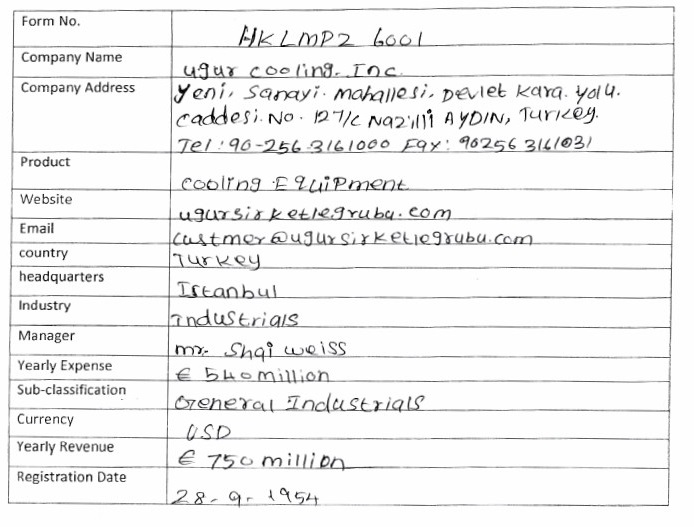 Form No. HKLMP2 6001
Company Name ugur cooling. Inc.
Company Address Yeni, Sanayi. mahallesi, Devlet kara. yolu.
caddesi. No. 127/C Nazilli AYDIN, Turkey.
Tel: 90-256 3161000 Fax: 90256 3161031
Product cooling Equipment
Website ugursirketlegrubu.com
Email Custmer@ugursirketlegrubu.com
country Turkey
headquarters Istanbul
Industry industrials
Manager mr. Shai weiss
Yearly Expense € 540 million
Sub-classification General Industrials
Currency USD
Yearly Revenue € 750 million
Registration Date 28-9-1954